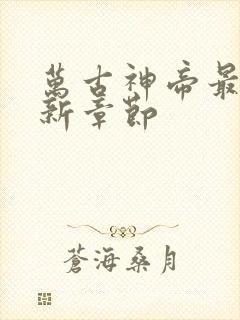 萬古神帝最
新章節
蒼海桑月